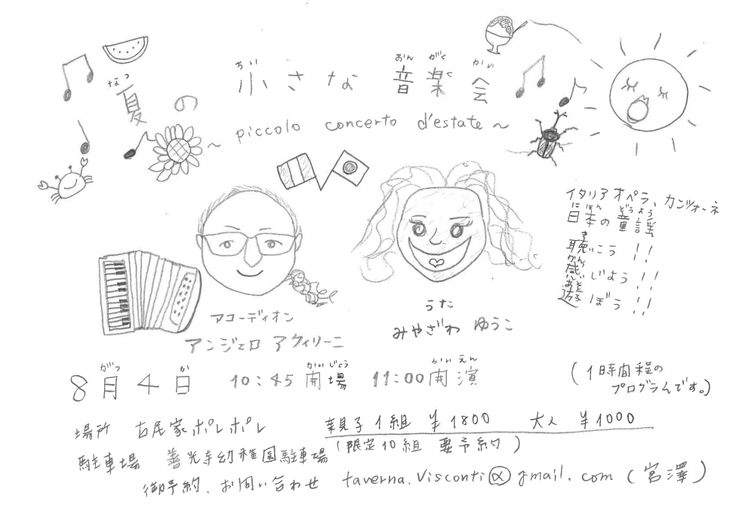 夏の 小さな 音楽会
なつ ちい おんがくかい
～ piccolo concerto d'estate ～
イタリアオペラ、カンツォーネ
日本の童謡
にほん どうよう
聴こう!!
き
感じよう!!
かん
遊ぼう!!
あそ
アコーディオン
アンジェロ アクィリーニ
うた
みやざわ ゆうこ
8月4日 10:45 開場 11:00 開演
がつ か かいじょう かいえん
(1時間程の
プログラムです。)
場所 古民家ポレポレ 親子1組 ¥1800 大人 ¥1000
駐車場 善光寺幼稚園駐車場 (限定10組 要予約)
御予約、お問い合わせ taverna.visconti@gmail.com (宮澤)